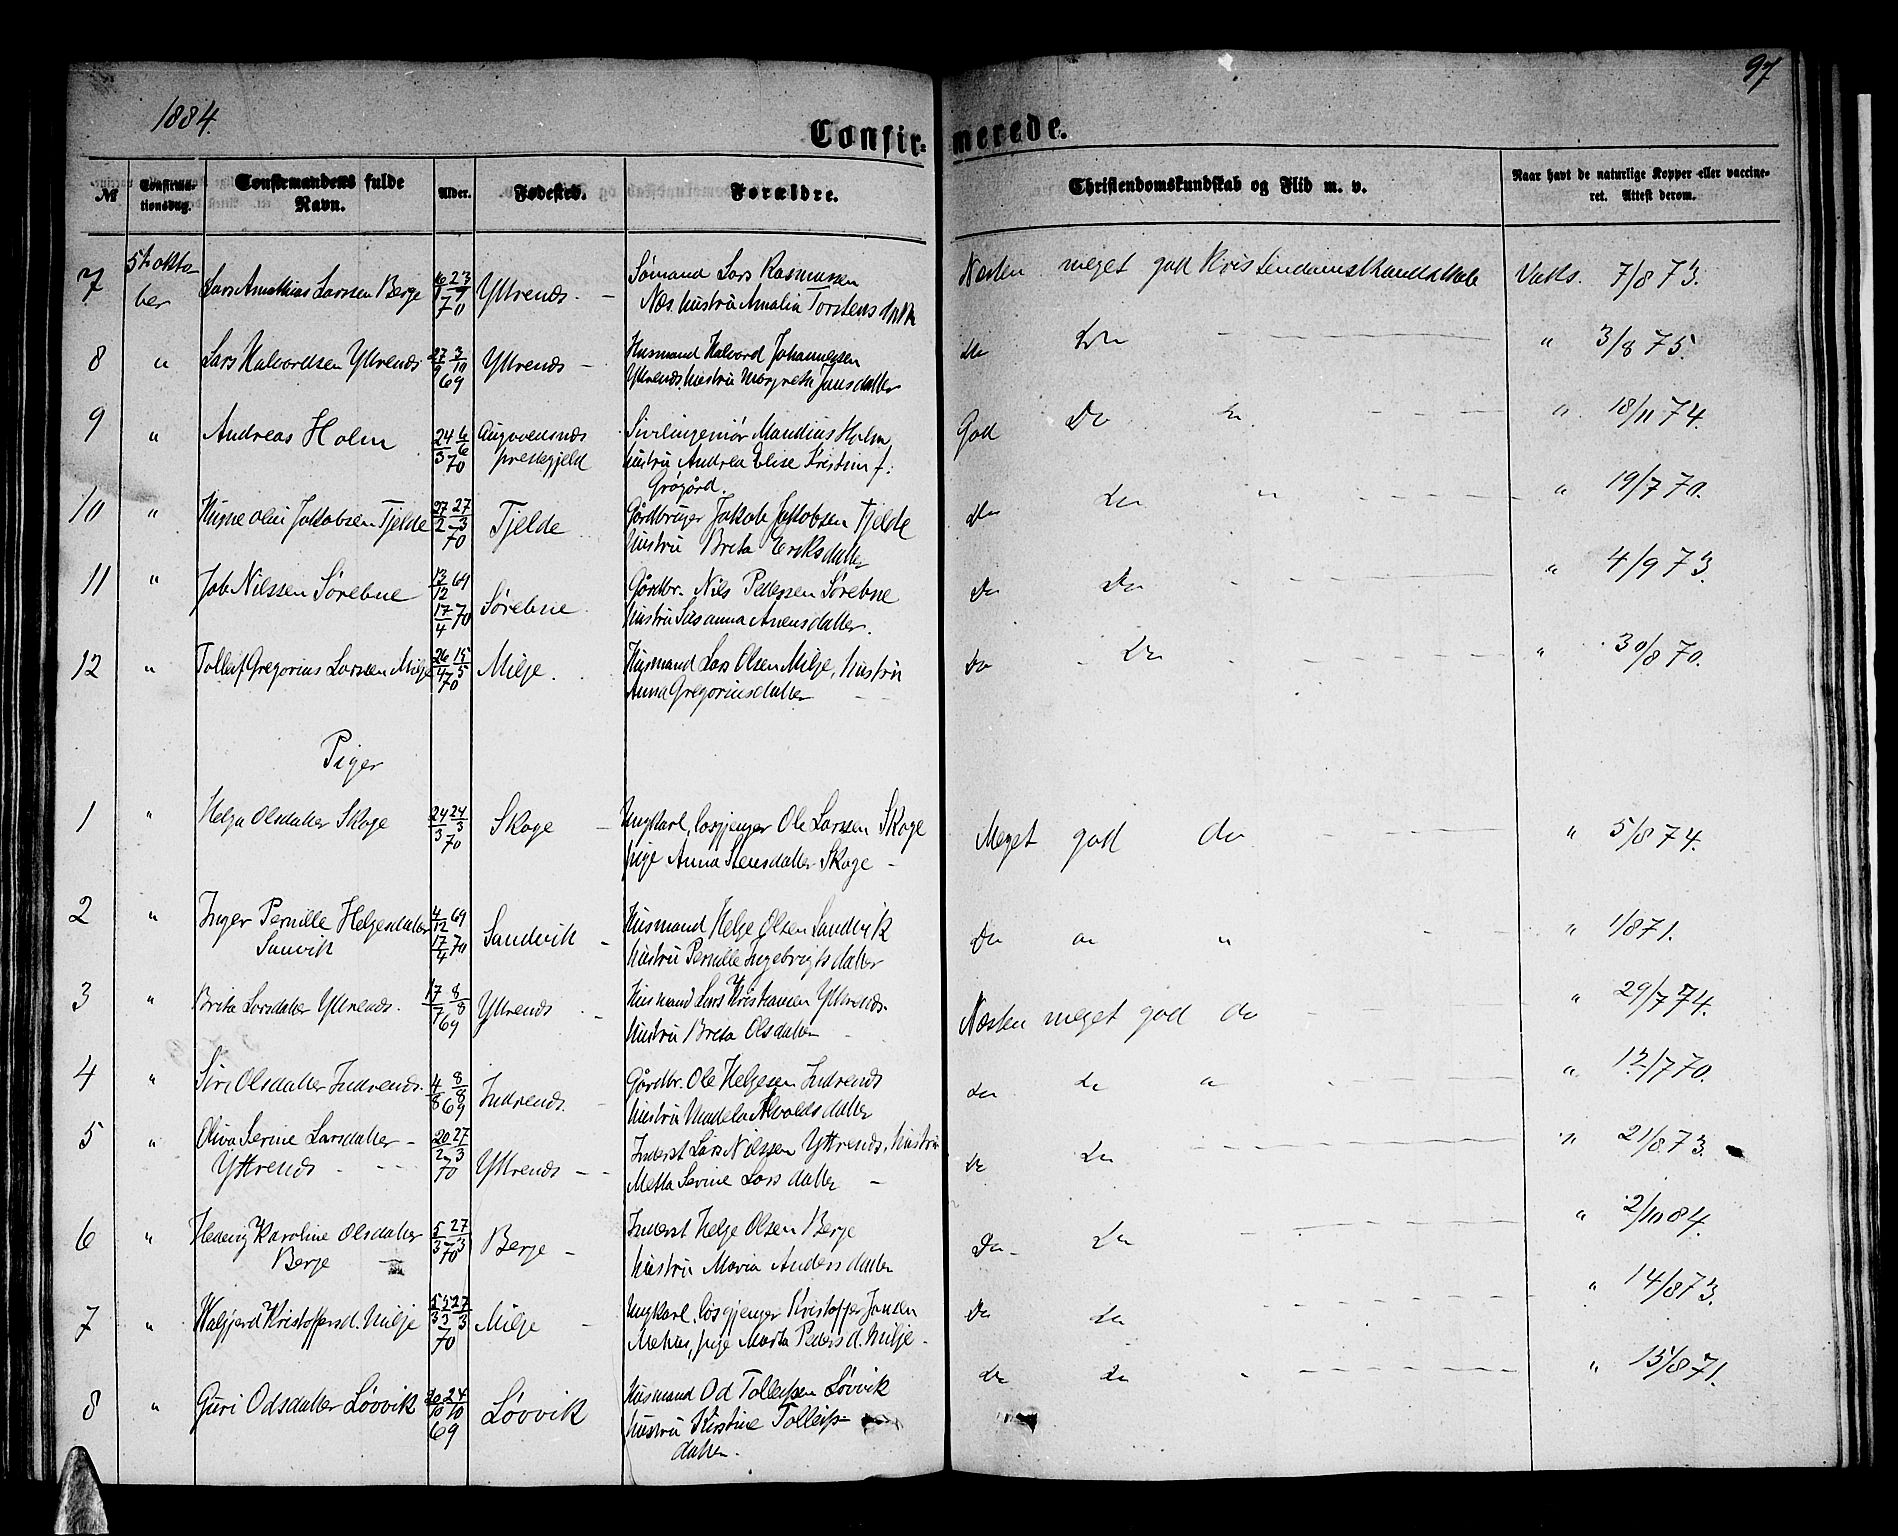 1884.
97
Confir=
merede.
№
Confirma-
tionsdag.
Confirmandens fulde
Navn.
Alder.
Fødested.
Forældre.
Christendomskundskab og Flid m. v.
Naar havt de naturlige Kopper eller vaccine-
ret. Attest derom.
7 5te okto-
ber
Lars Amathias Larssen Berge
70
Yttrends. -
Sømand Lars Rasmussen
Næs. hustru Amalia Torstensdattr
Næsten meget god Kristendomskundskab
Vatts. 7/8 73.
8 " Lars Halvordsen Yttrends 27/9 3/10 69 Yttrends -
Husmand Halvord Johannessen
Yttrends. hustru Margrete Jansdatter
do do " 3/8 75.
9 " Andreas Holm 24/3 6/6 70
prestegjeld
Sivilingeniør Mandius Holm
hustru Andrea Elise Kristine f.
Grøgård.
God Do " 18/11 74.
10 " Jakobsen Tjelde 27/2 27/3 70 Tjelde
Gårdbruger Jakob Jakobsen Tjelde
hustru Brita Eriksdatter
Do do " " 19/7 70.
11 " Job Nilssen Sørebne 13/12 69
17/4 70 Sørebne
Gårdbr. Nils Pedersen Sørebne
hustru Susanna Anensdatter.
Do Do " 4/9 73.
12 " Tolleif Gregorius Larssen Milje 26/4 15/5 70 Milje.
Husmand Lars Olsen Milje, hustru
Anna Gregoriusdatter
Do Do " 30/8 70.
Piger
1 " Helga Olsdatter Skoge 24/3 24/3 70 Skoge -
Ungkarl, losgjenger Ole Larssen Skoge
pige Anna Stensdatter Skoge -
Meget god do " 5/8 74.
2 " Inger Pernille Helgesdatter
Sanvik
4/12 69
17/4 70 Sandvik -
Husmand Helge Olsen Sandvik
hustru Pernille Ingebrigtsdatter
Do " " 1/8 71.
3 " Brita Larsdatter Yttrends. 17/7 8/8 69 Yttrends -
Husmand Lars Kristiansen Yttrends.
hustru Brita Olsdatter
Næsten meget god do " 29/7 74.
4 " Siri Olsdatter Indrends. 4/8 8/8 69 Indrends. -
Gårdbr. Ole Helgesen Indrends
do do " " 13/7 70.
5 " Oliva Serine Larsdatter -
Yttrends - - -
20/2 27/3 70 Yttrends - -
Inderst Lars Nilssen Yttrends, hustru
Metta Serine Larsdatter -
do do " 21/8 73.
6 " Hedevig Karoline Olsdatter
Berge
5/3 27/3 70 Berge -
Inderst Helge Olsen Berge
hustru Maria Andersdatter
Do- do " 2/10 84.
7 " Walgjerd Kristoffersd. Milje 27/3
70 Milje -
Ungkarl, losgjenger Kristoffer
pige Marta Pedersd. Milje -
Do do " 14/8 73.
8 " Guri Odsdatter Løvvik 20/10 24/10 69 Løvvik
Husmand Od Tolleifsen Løvvik
hustru Kirstine Tolleifs-
datter.
do do " 15/8 71.